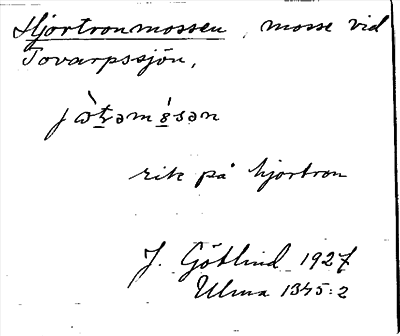 Hjortronmossen, mosse vid
Tovarpssjön,
jòtrəmósən
rik på hjortron
J. Götlind 1927
Ulma 1345:2